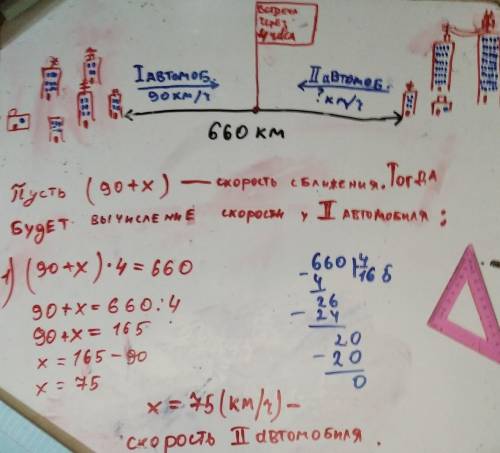 Встреча
через
4 часа
I автомоб.
90 км/ч
II автомоб.
? км/ч
660 км
Пусть (90+x) — скорость сближения. Тогда
будет вычисление скорости у II автомобиля:
1) (90+x)·4=660
90+x=660:4
90+x=165
x=165-90
x=75
660 4
- 4 165
26
- 24
20
- 20
0
x=75(км/ч) —
скорость II автомобиля.